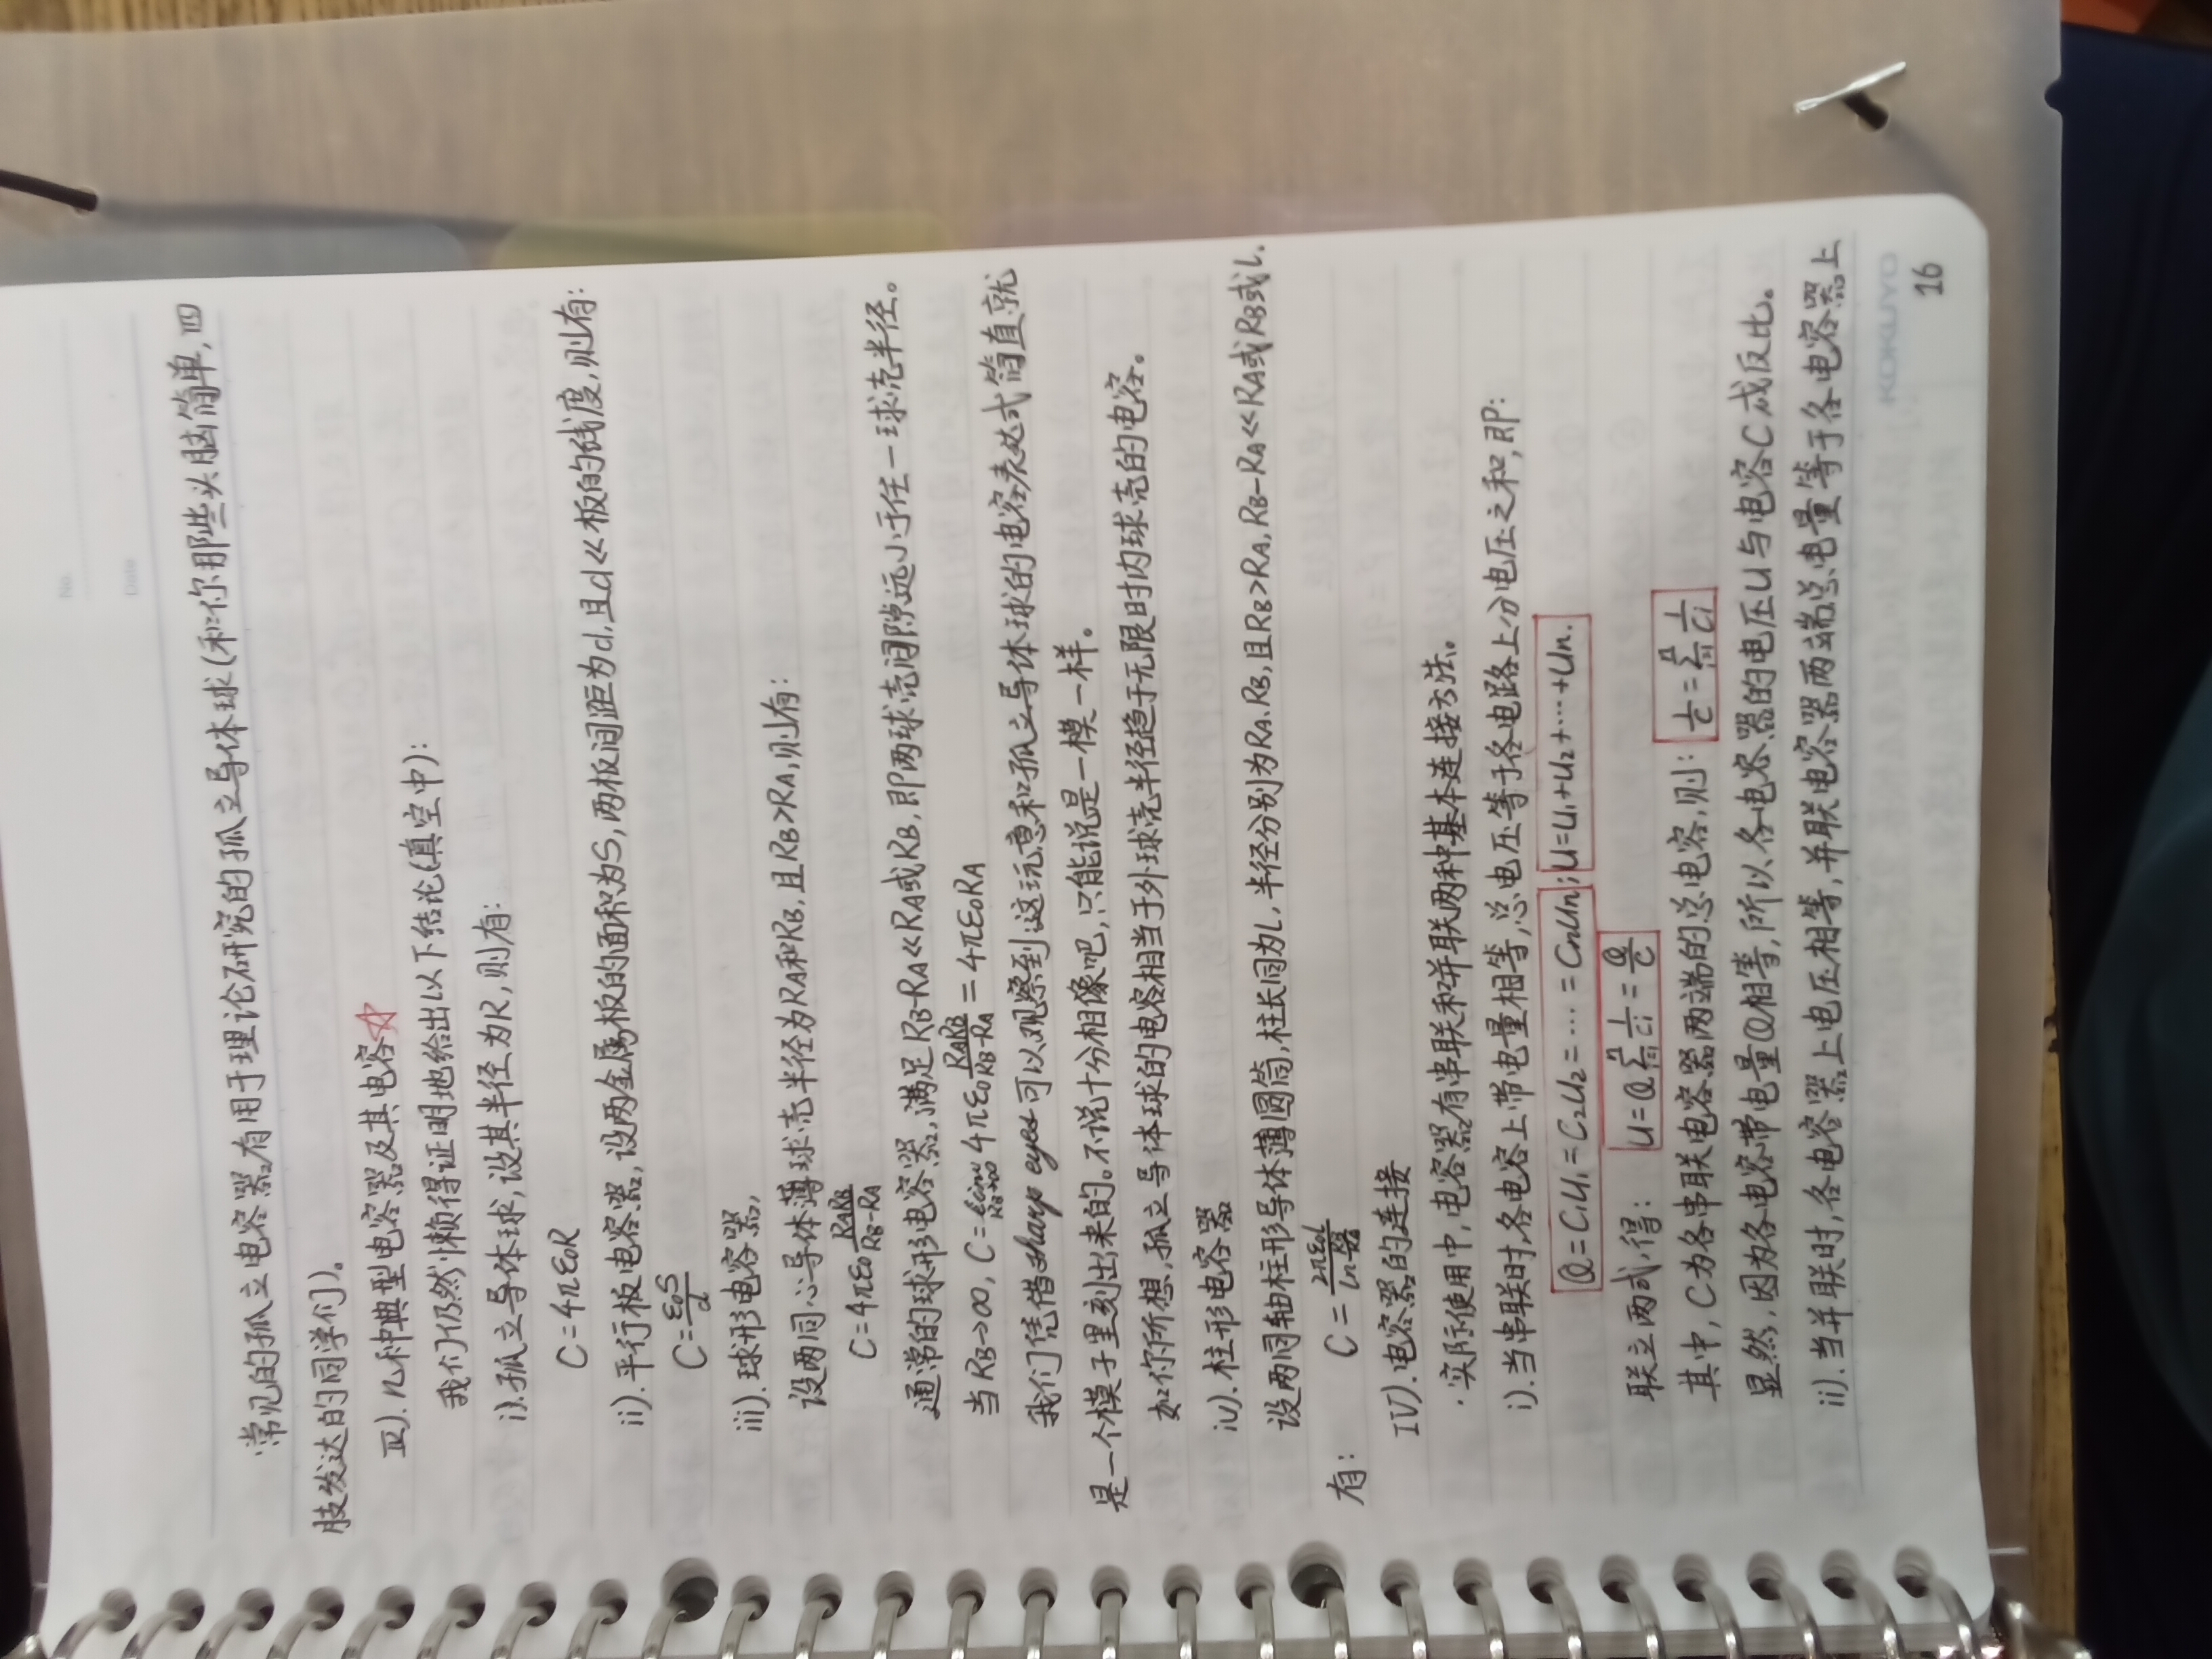 No.
Date
常见的孤立电容器有用于理论研究的孤立导体球(和你那些头脑简单,四
肢发达的同学们)。
III).几种典型电容器及其电容☆
我们仍然懒得证明地给出以下结论(真空中):
i).孤立导体球,设其半径为R,则有:
C=4πε₀R
ii).平行板电容器,设两金属板的面积为S,两板间距为d,且d≪板的线度,则有:
C=ε₀S/d
iii).球形电容器,
设两同心导体薄球壳半径为RA和RB,且RB>RA,则有:
C=4πε₀ RARB/(RB-RA)
通常的球形电容器,满足RB-RA≪RA或RB,即两球壳间隙远小于任一球壳半径。
当RB→∞, C=lim RB→∞ 4πε₀ RARB/(RB-RA) = 4πε₀RA
我们凭借sharp eyes可以观察到这玩意和孤立导体球的电容表达式简直就
是一个模子里刻出来的。不说十分相像吧,只能说是一模一样。
如你所想,孤立导体球的电容相当于外球壳半径趋于无限时内球壳的电容。
iv).柱形电容器
设两同轴柱形导体薄圆筒,柱长同为L,半径分别为RA、RB,且RB>RA,RB-RA≪RA或RB或L.
有: C = 2πε₀L/ln(RB/RA)
IV).电容器的连接
·实际使用中,电容器有串联和并联两种基本连接方法。
i).当串联时,各电容上带电量相等,总电压等于各电路上分电压之和,即:
Q=C₁U₁=C₂U₂=…=CnUn; U=U₁+U₂+…+Un.
联立两式,得: U=Q Σ(i=1→n) 1/Ci = Q/C
其中,C为各串联电容器两端的总电容,则: 1/C = Σ(i=1→n) 1/Ci
显然,因为各电容带电量Q相等,所以各电容器的电压U与电容C成反比。
ii).当并联时,各电容器上电压相等,并联电容器两端总电量等于各电容器上
KOKUYO
16